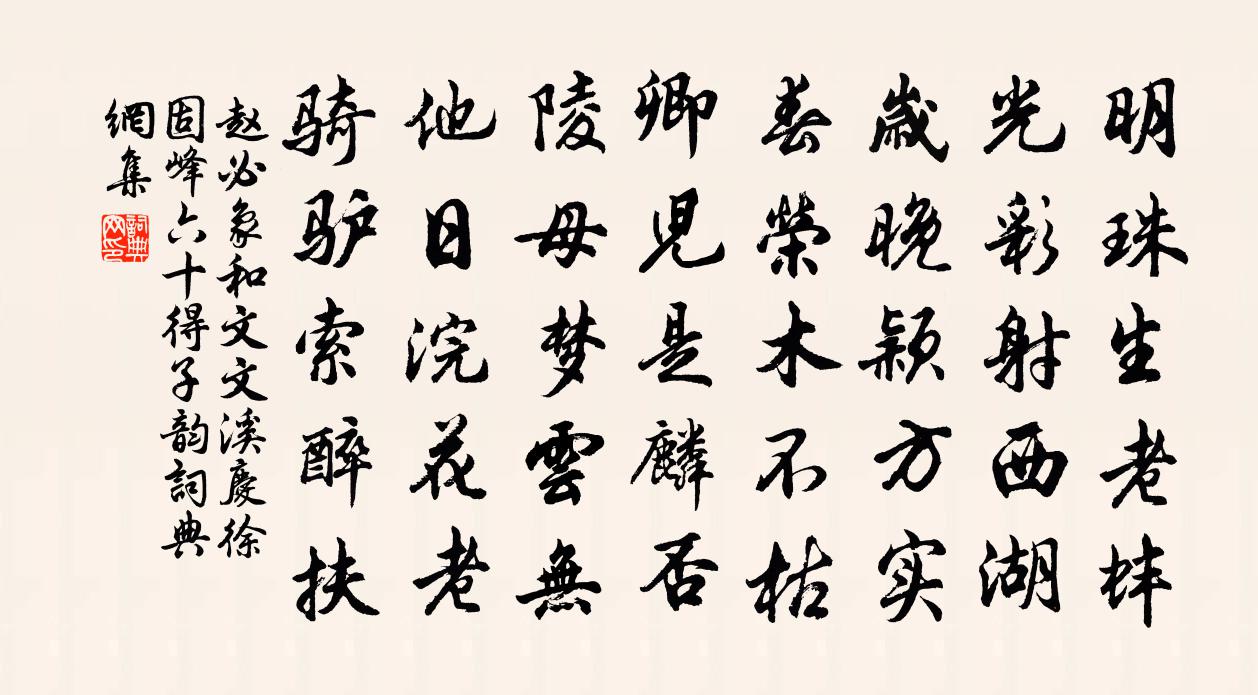 明珠生老蚌
光彩射西湖
歳晚颖方实
春榮木不枯
卿児是麟否
陵母梦雲無
他日浣花老
骑驴索醉扶
赵必象和文文溪慶徐
固峰六十得子韵詞典
網集
詞典
网印